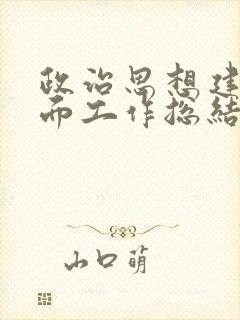 政治思想建
而工作总结
山口萌